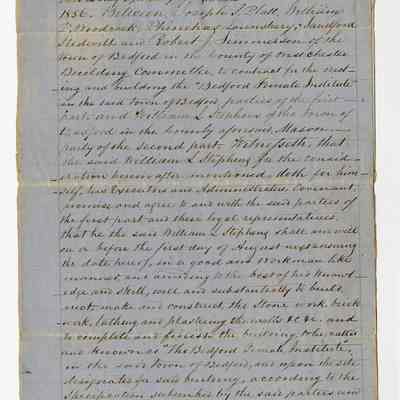 1856. Between Joseph S. Platt, William
Woodcock, Phinehas Lounsbury, Sandford
and Robert J. Simmerson of the
Town of Bedford in the County of Westchester
Building Committee to contract for the erect-
ing and building the "Bedford Female Institute"
in the said Town of Bedford, parties of the first
part and William L. Stephens of the Town of
Bedford in the County aforesaid, Mason
party of the second part. Witnesseth, that
the said William L. Stephens for the consid-
eration herein after mentioned, doth for him-
self, his Executors and Administrators, Covenant,
promise and agree to and with the said parties of
the first part and their legal representatives,
that he the said William L. Stephens shall and will
on or before the first day of August next ensuing
the date hereof, in a good and workman like
manner, and according to the best of his knowl-
edge and skill, well and substantially to build,
make and construct, the Stone work, brick
work, lathing and plastering the walls &c &c. and
to complete and finish the building, to be called
and known as "The Bedford Female Institute",
in the said Town of Bedford, and upon the site
designated for said building, according to the
Specification subscribed by the said parties and